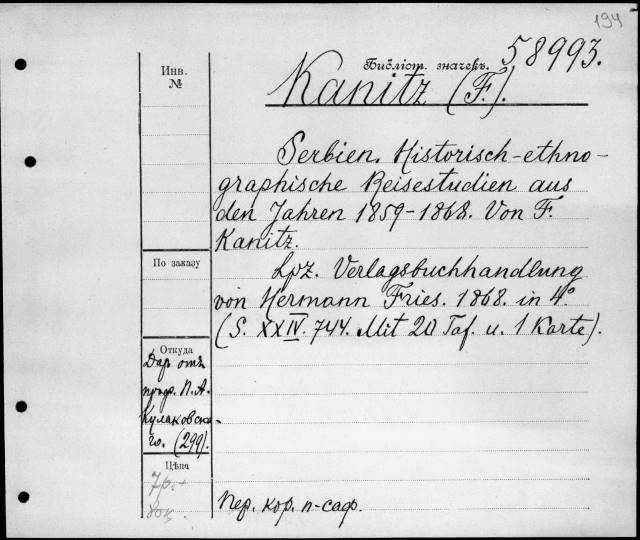 194
Библіот. значекъ. 58993.
Kanitz (F.).
Инв.
№
Serbien. Historisch-ethno-
graphische Reisestudien aus
den Jahren 1859-1868. Von F.
Kanitz.
По заказу
Lpz. Verlagsbuchhandlung
von Hermann Fries. 1868. in 4°.
(S. XXIV. 744. Mit 20 Taf. u. 1 Karte).
Откуда
Даръ отъ
проф. П. А.
Куликовска-
го. (299).
Цѣна
7р.
Пер. кор. п-саф.